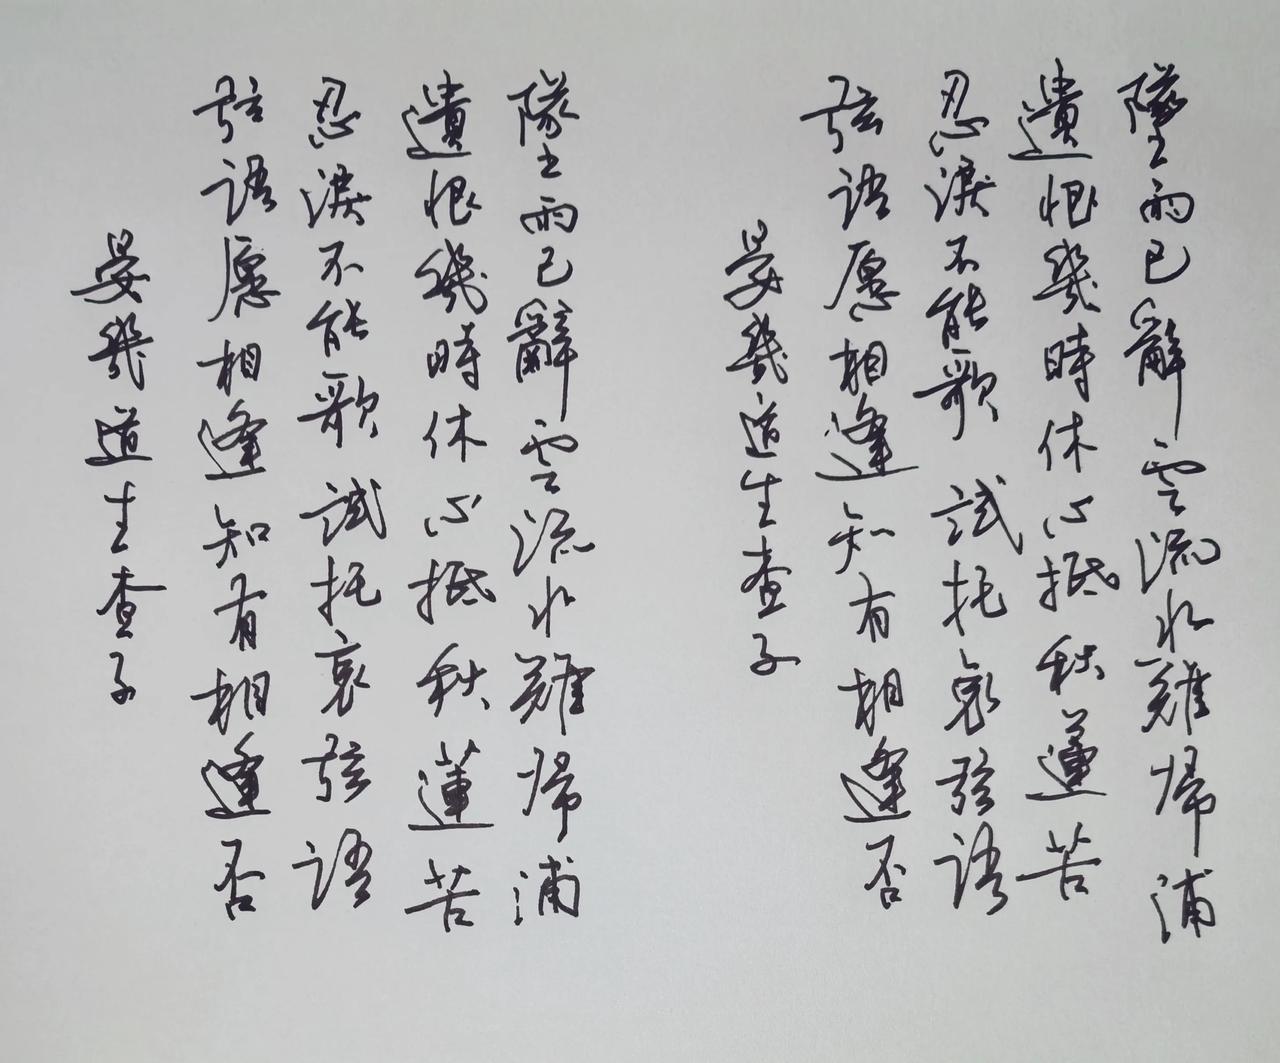 墜雨已辭雲流水難歸浦
遺恨幾時休心抵秋蓮苦
忍淚不能歌試托哀弦語
弦語愿相逢知有相逢否
晏幾道生查子
墜雨已辭雲流水難歸浦
遺恨幾時休心抵秋蓮苦
忍淚不能歌試托哀弦語
弦語愿相逢知有相逢否
晏幾道生查子